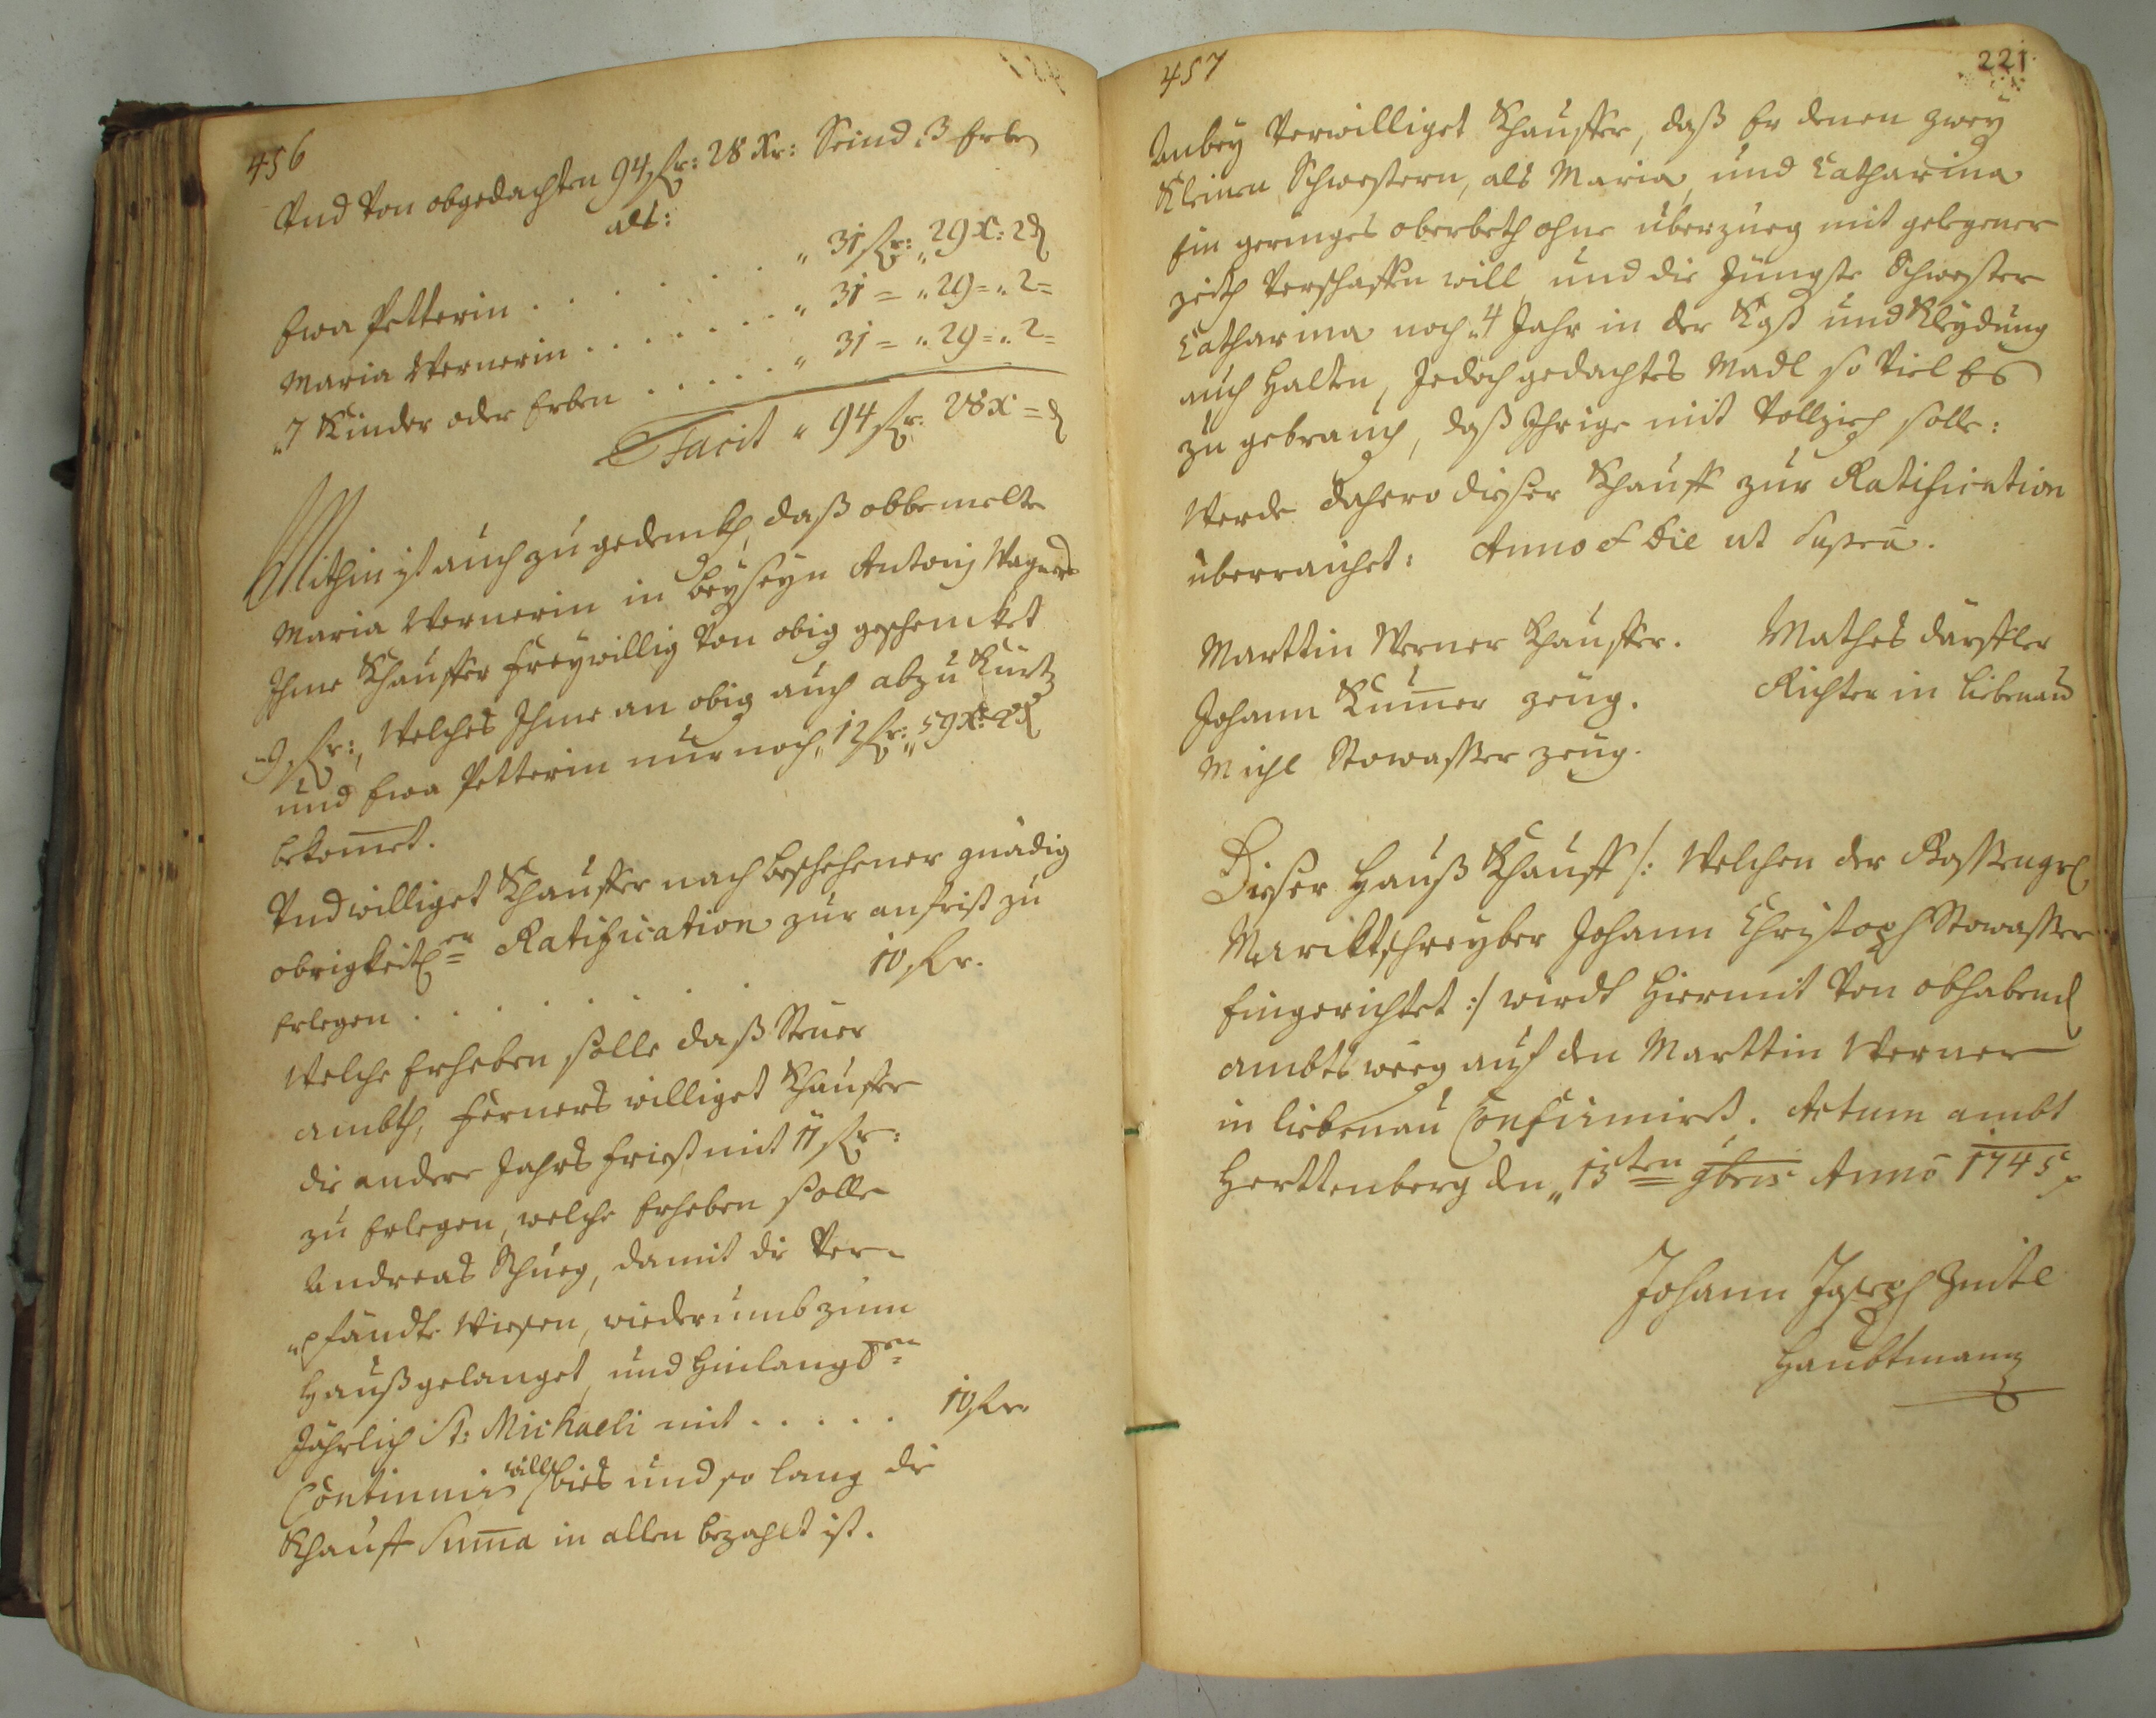 456
Vnd von obgedachten 94 fl: 28 Kr: Seind 3 Erben
als:
Ewa Petterin . . . . . . . „ 31 fl: „ 29 x: 2 ₰
Maria Wernerin . . . . . . . „ 31 = „ 29 = „ 2 =
„ 7 Kinder oder Erben . . . . . „ 31 = „ 29 = „ 2 =
Facit „ 94 fl: 28 x = ₰
Mithin ist auch zu gedenckh, daß obbemelte
Maria Wernerin in beyseyn Antonj Wagners
Ihme Khauffer freywillig von obig geschencket
„ 9 fl:, Welches Ihme an obig auch abzu Kürtz
und Ewa Petterin nur noch „ 12 fl: „ 59 x: 2 ₰
bekom̅et.
Vnd williget Khauffer nach beschehener gnädig
obrigkeitl:en Ratification zur anfrist zu
Erlegen . . . . . . . 10 fl:
Welche Erheben solle daß Steuer
ambth, ferners williget Khauffer
die andere Jahrs frist mit 11 fl:
zu Erlegen, welche Erheben solle
Andreas Schueg, damit die Ver-
„pfändte Wiesen, wiederumb zum
Hauß gelanget, und hinlangden
Jährlich St: Michaeli mit . . . . . 10 fl:
Continuir will bies und so lang die
Khauff Sum̅a in allen bezahlt ist.
457
221
Anbey Verwilliget Khauffer, daß Er denen zwey
Kleinen Schwestern, als Maria, und Catharina
Ein geringes oberbeth ohne überzueg mit gelegener
zeith verschaffen will, und die Jüngste Schwester
Catharina noch „ 4 Jahr in der Kost und Kleydung
auch halten, Jedoch gedachtes Madl so viel Es
zu gebrauch, daß Ihrige mit Vollzieh solle:
Werde dahero dieser Khauff zur Ratification
überraichet: Anno & Die ut Supra.
Marttin Werner Khauffer. Mathes därffler
Johann Kum̅er zeug. Richter in liebenau
Michl Stowasser zeug.
Dieser Hauß Khauff /: Welchen der Rossengrl
Marcktschreyber Johann Christoph Stowasser
Eingerichtet :/ wirdt hiermit von obhabend
ambts weeg auf den Marttin Werner
in liebenau Confirmirt. Actum ambt
Herttenberg den „ 15ten 9bris Anno 1745
Johann Joseph
Haubtmann